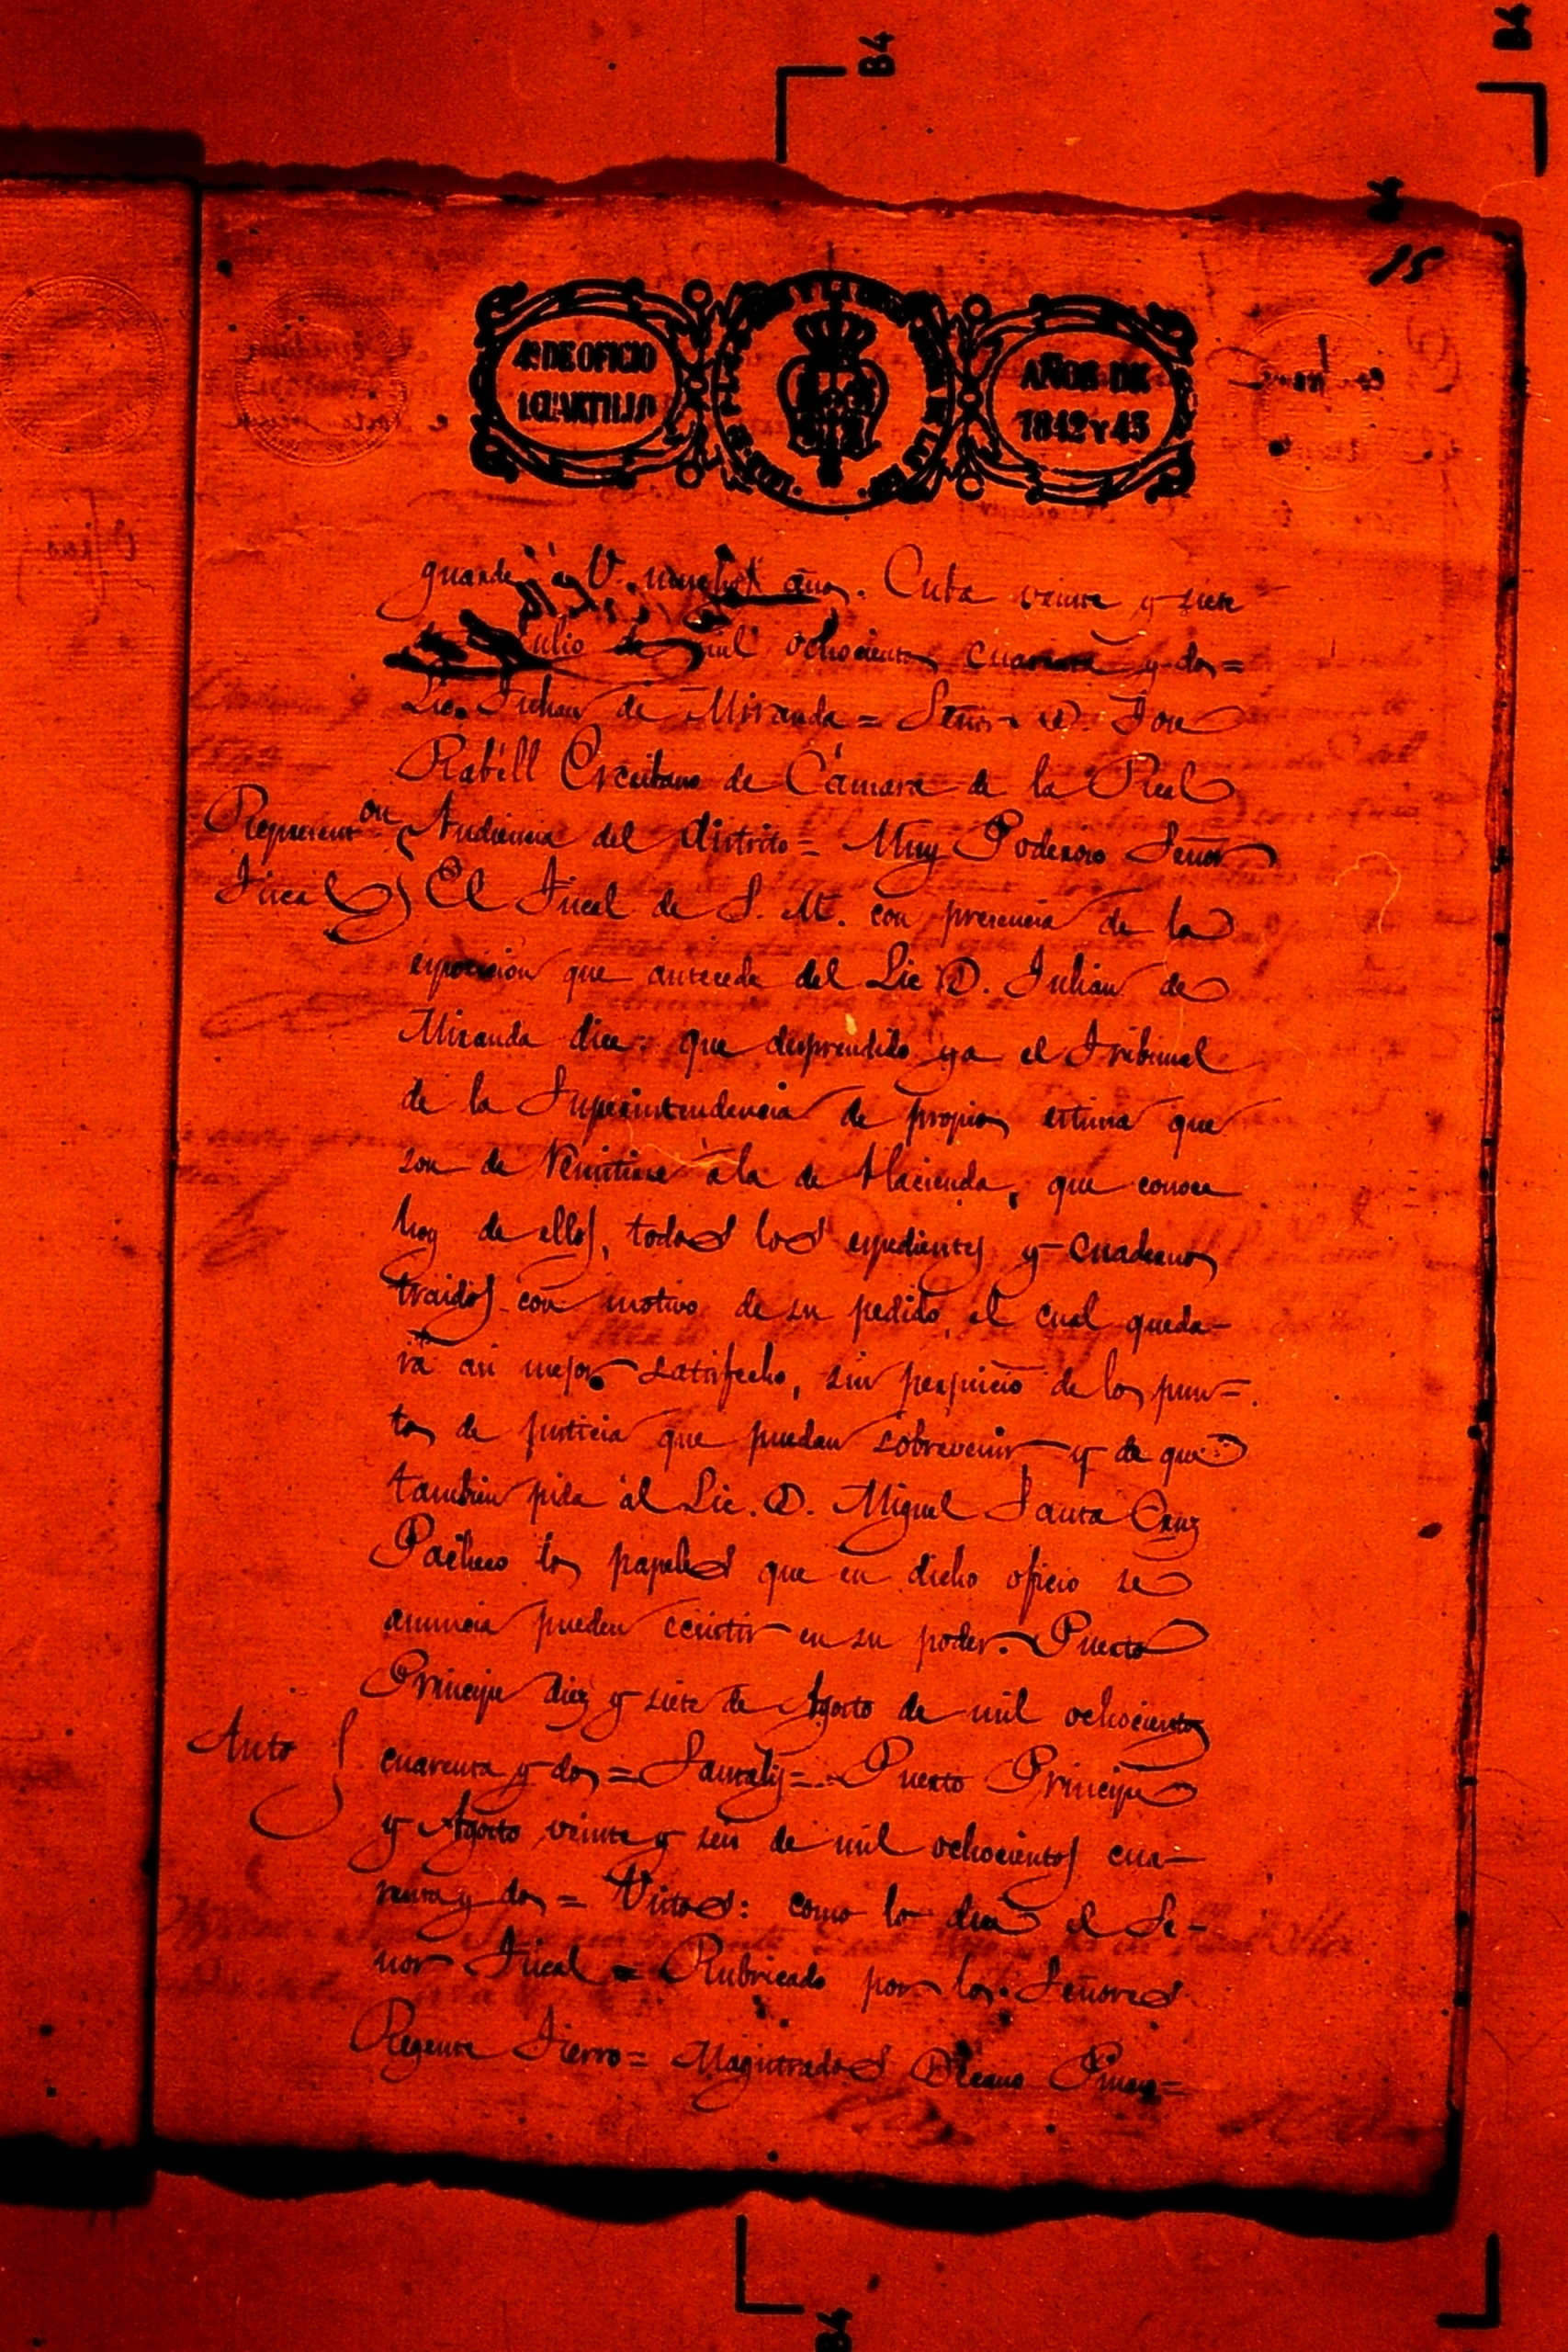 B4
B4
15
4º DE OFICIO
1 CUARTILLO
AÑOS DE
1842 Y 43
guarde á V. muchos años. Cuba veinte y siete
Julio de mil ochocientos cuarenta y dos =
Lic. Julian de Miranda = Señor D. Jose
Rabell Escribano de Cámara de la Real
Represent.on Audiencia del distrito = Muy Poderoso Señor
Fiscal El Fiscal de S. M. con presencia de la
exposicion que antecede del Lic D. Julian de
Miranda dice: que desprendido ya el Tribunal
de la Superintendencia de propios estima que
son de remitirse á la de Hacienda, que conoce
hoy de ellos, todos los espedientes y cuadernos
traidos con motivo de su pedido, el cual queda-
rá asi mejor satisfecho, sin perjuicio de los pun=
tos de justicia que puedan sobrevenir y de que
tambien pida al Lic. D. Miguel Santa Cruz
Pacheco los papeles que en dicho oficio se
anuncia pueden ecsistir en su poder. Puerto
Principe diez y siete de Agosto de mil ochocientos
Auto cuarenta y dos = = Puerto Principe
y Agosto veinte y seis de mil ochocientos cua-
renta y dos = Vistos: como lo dice el Se-
ñor Fiscal = Rubricado por los Señores
Regente Fierro = Magistrados
B4